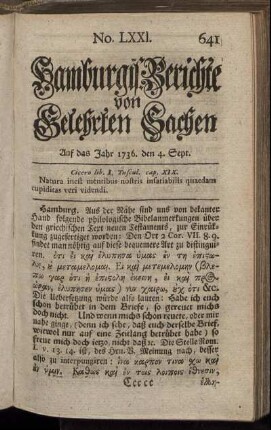 No. LXXI.
641
Hamburgis. Berichte
von
Gelehrten Sachen
Auf das Jahr 1736. den 4. Sept.
Cicero lib. I. Tuscul. cap. XIX.
Natura inest mentibus nostris insatiabilis quaedam
cupiditas veri videndi.
Hamburg. Aus der Nähe sind uns von bekanter
Hand folgende philologische Bibelanmerkungen über
den griechischen Text neuen Testaments, zur Einrük-
kung zugefertiget worden: Den Ort 2 Cor. VII. 8. 9.
findet man nöhtig auf diese bequemere Art zu distingui-
ren. ὅτι εἰ καὶ ἐλύπησα ὑμᾶς ἐν τῇ ἐπιςο-
λῇ, ȣ μεταμέλομαι. Εἰ καὶ μετεμελόμην (βλέ-
πω γὰρ ὅτι ἡ ἐπιςολὴ ἐκείνη, εἰ καὶ πρὸς
ὥραν, ἐλύπησεν ὑμᾶς) νῦν χαίρω, ȣχ ὅτι &c.
Die Uebersetzung würde also lauten: Habe ich euch
schon betrübet in dem Briefe, so gereuet mich
doch nicht. Und wenn michs schon reuete, oder mir
nahe ginge, (denn ich sehe, daß euch derselbe Brief,
wiewol nur auf eine Zeitlang betrübet habe) so
freue mich doch ietzo, nicht daß ꝛc. Die Stelle Rom.
I. v. 13. 14. ist, des Hrn. V. Meinung nach, besser
also zu interpungiren: ἵνα καρπόν τινα χῶ καὶ
ἐν ὑμῖν. Καθὼς καὶ ἐν τοῖς λοιποῖς ἔθνεσιν,
Ccccc